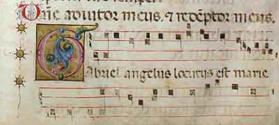 One adiutor meus. ⁊ redẽptor meus.
Gabriel angelus locutus est marie